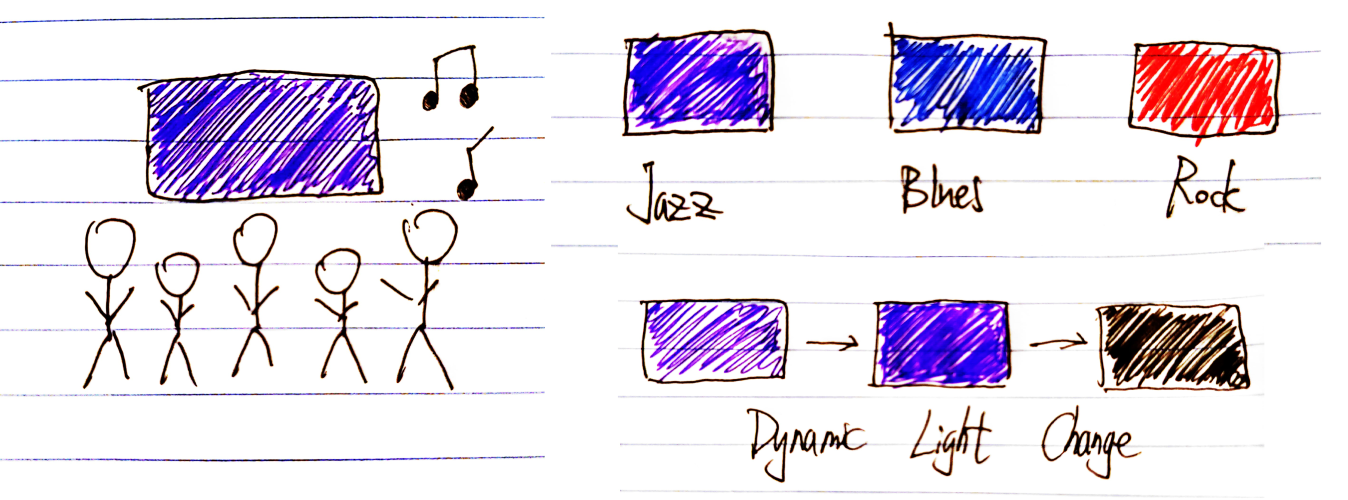 Jazz Blues Rock
Dynamic Light Change